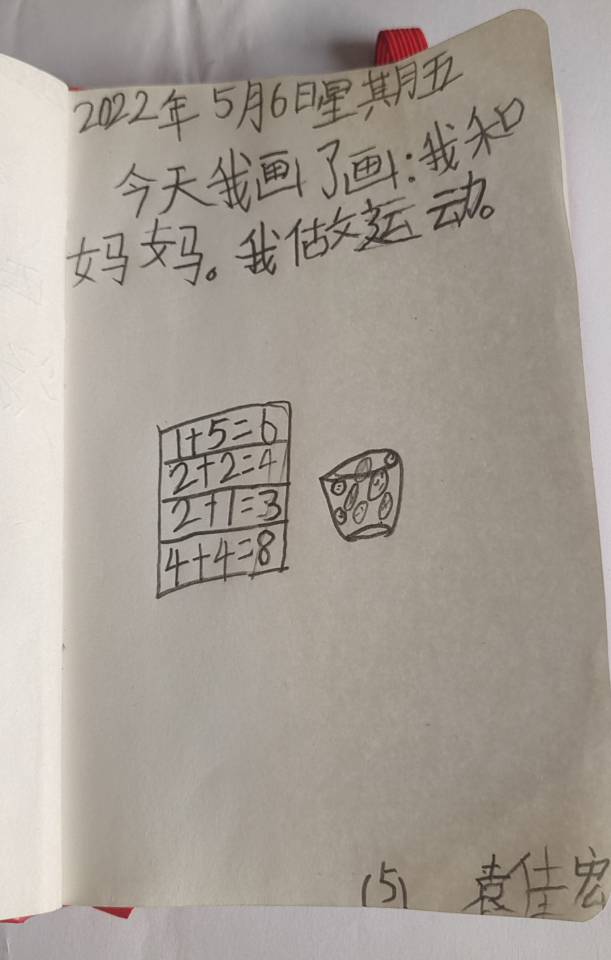 2022年5月6日星其月五
今天我画了画:我和
妈妈。我做运动。
1+5=6
2+2=4
2+1=3
4+4=8
(5) 袁佳宏